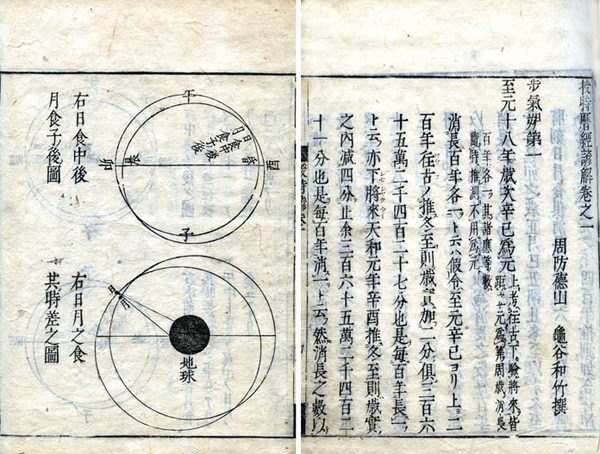 授時曆經諺解卷之一
周防德山 龜谷和竹撰
步氣朔第一
至元十八年歲次辛巳爲元
上考往古下驗將來皆
距立元爲筭周歲消長
百年各一其諸應等數
隨時推測不用爲元
消長百年各一ト云ハ假令至元辛巳ヨリ上二
百年往古ノ推冬至則歲實加二分俱三百六
十五萬二千四百二十七分也是每百年長一
ト云亦下將來天和元年辛酉推冬至則歲實
之內減四分止余三百六十五萬二千四百二
十一分也是每百年消一ト云然消長之數以
午
酉
昏
日食中後
月食子後
晨
卯
子
地球
右日食中後
月食子後圖
右日月之食
其時差之圖